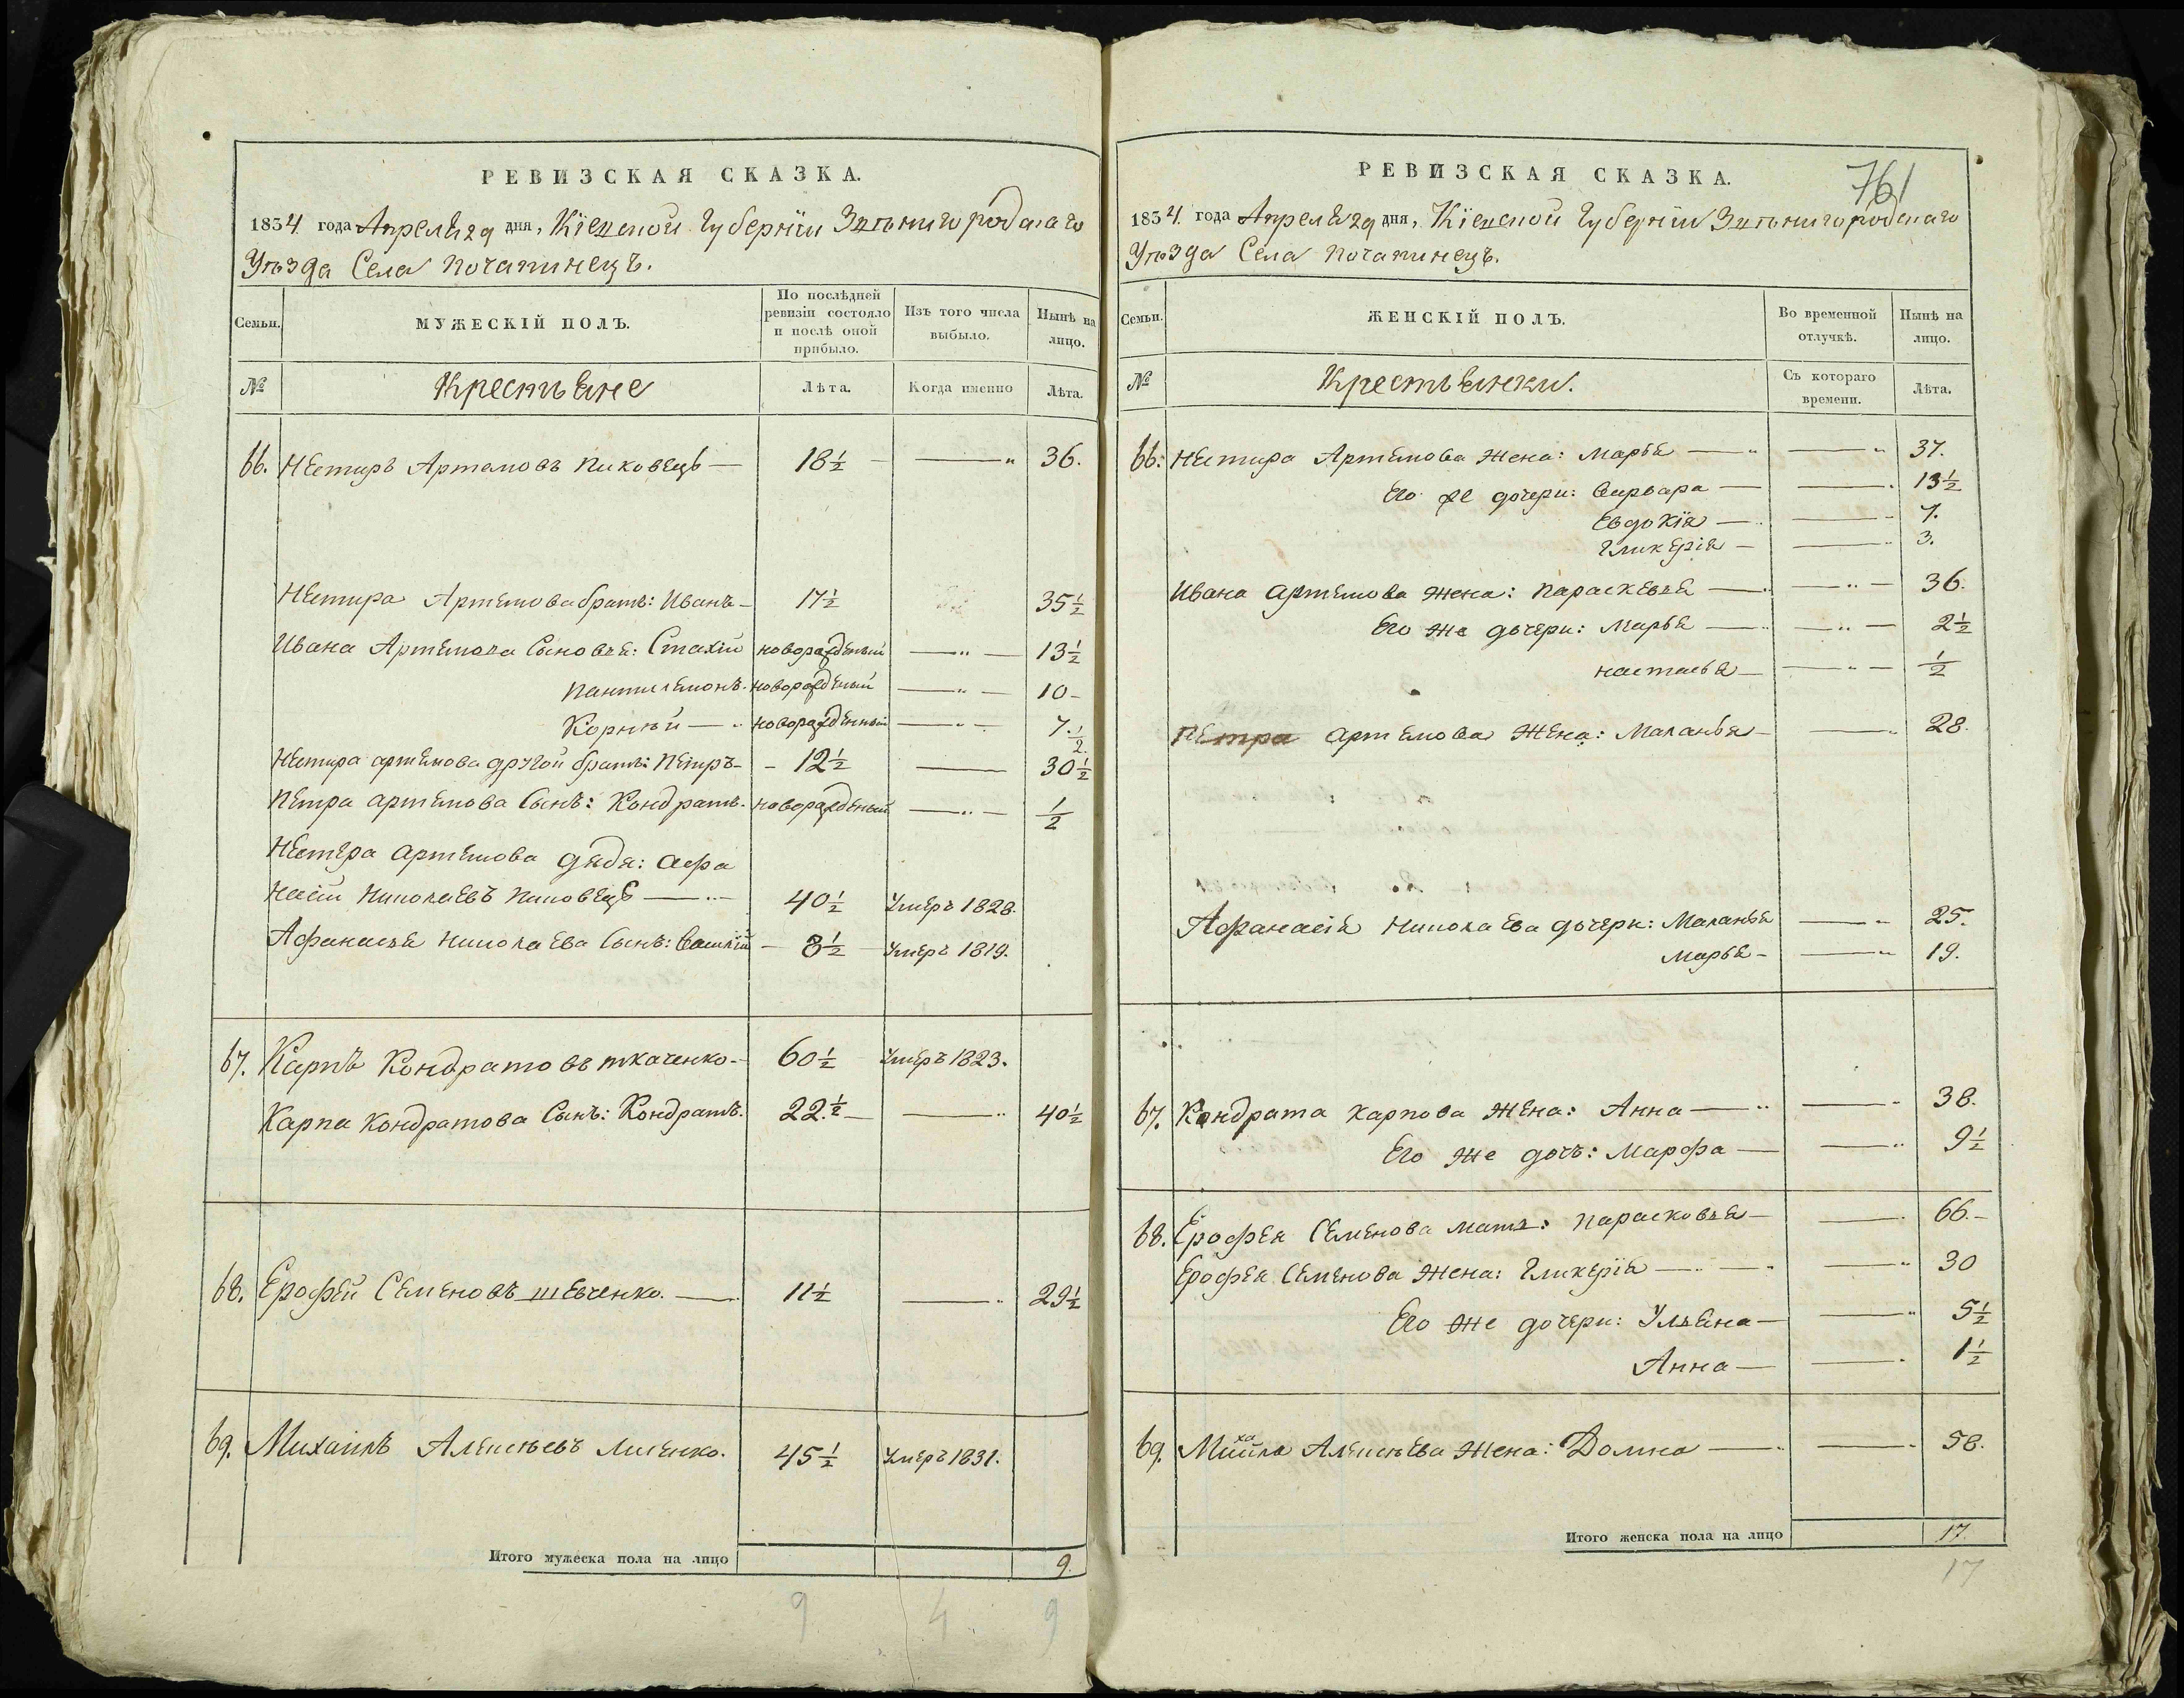 РЕВИЗСКАЯ СКАЗКА.
1834 года Апреля 29 дня, Кіевской Губерніи Звѣнигородскаго
Уѣзда Села Почапинецъ.
Семьи.
МУЖЕСКІЙ ПОЛЪ.
По послѣдней ревизіи состояло и послѣ оной прибыло.
Изъ того числа выбыло.
Нынѣ на лицо.
№
Крестьяне
Лѣта.
Когда именно
Лѣта.
66. Нестиръ Артемовъ Пиковецъ — 18½ — " 36.
Нестира Артемова братъ: Иванъ - 17½ 35½
Ивана Артемова Сыновья: Стахій новорожденый — " — 13½
Пантилемонъ. новорожденый — " — 10 -
Корнѣй — " новорожденный — " — 7.½.
Нестира артемова другой братъ: Петръ - - 12½ — 30½
Петра артемова Сынъ: Кондратъ. новорожденый — " — ½
Нестера артемова дядя: афа
насій Николаевъ Пиковецъ — " — 40½ Умеръ 1828.
Афанасья Николаева Сынъ: Василій - 8½ Умеръ 1819.
67. Карпъ Кондратовъ ткаченко - 60½ Умеръ 1823.
Карпа Кондратова Сынъ: Кондратъ. 22.½ — — " 40½
68. Ерофей Семеновъ шевченко. — 11½ — " 29½
69. Михаилъ Алексѣевъ Лисенко. 45½ Умеръ 1831.
Итого мужеска пола на лицо 9.
9 4 9
РЕВИЗСКАЯ СКАЗКА.
761
1834 года Апреля 29 дня, Кіевской Губерніи Звѣнигородскаго
Уѣзда Села Почапинецъ.
Семьи.
ЖЕНСКІЙ ПОЛЪ.
Во временной отлучкѣ.
Нынѣ на лицо.
№
Крестьянки.
Съ котораго времени.
Лѣта.
66: Нестира Артемова Жена: Марья — " — " 37.
Его же дочери: Варвара — — " 13½
Евдокія — " — " 7.
Гликерія — — " 3.
Ивана артемова Жена: Параскевья — " — " — 36.
Его же дочери: Марья — " — " — 2½
настасья — — " — ½
Петра артемова Жена: Маланья - — " 28.
Афанасія Николаева дочери: Маланья — " 25.
Марья - — " 19.
67. Кондрата карпова Жена: Анна — " — " 38.
Его же дочъ: Марфа — — " 9½
68. Ерофея Семенова мать: Парасковья — — " 66. -
Ерофея Семенова Жена: Гликерія — " — " — " 30
Его же дочери: Ульяна — — " 5½
Анна — — " 1½
69. Михайла Алексѣева Жена: Домна — " — " 58.
Итого женска пола на лицо 17.
17